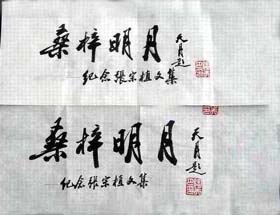 桑梓明月
纪念張宗植文集
天月题
桑梓明月
纪念張宗植文集
天月题